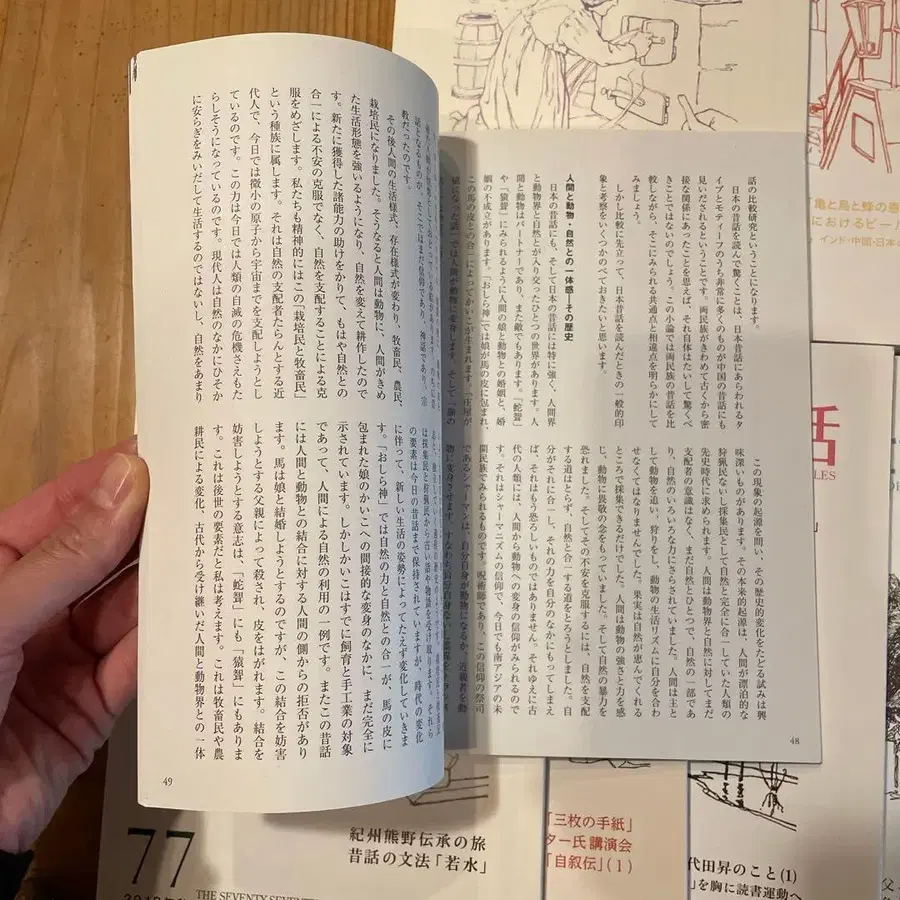 話の比較研究ということになります。
日本の昔話を読んで驚くことは、日本昔話にあらわれるタ
イプとモティーフのうち非常に多くのものが中国の昔話にも
見いだされるということです。両民族がきわめて古くから密
接な関係にあったことを思えば、それ自体はたいして驚くべ
きことではないのでしょう。この小論では両民族の昔話を比
較しながら、そこにみられる共通点と相違点を明らかにして
みましょう。
しかし比較に先立って、日本昔話を読んだときの一般的印
象と考察をいくつかのべておきたいと思います。
人間と動物・自然との一体感―その歴史
日本の昔話にも、そして日本の昔話には特に強く、人間界
と動物界と自然とが入り交ったひとつの世界があります。人
間と動物はパートナーであり、また敵でもあります。「蛇聟」
や「猿聟」にみられるように人間の娘と動物との婚姻と、婚
姻の不成立があります。「おしら神」では娘が馬の皮に包まれ、
この馬の皮との合一によってかいこが生まれます。
この現象の起源を問い、その歴史的変化をたどる試みは興
味深いものがあります。その本来的起源は、人間が漂泊的な
狩猟民ないし採集民として自然と完全に一体していた人類の
先史時代に求められます。人間は動物界と自然に対してまだ
支配者の意識はなく、まだ自然とひとつで、自然の一部であ
り、自然のいろいろな力にさらされていました。人間は主と
して動物を追い、狩りをし、動物の生活リズムに自分を合わ
せなくてはなりませんでした。果実は自然が恵んでくれる
ところで採集できるだけでした。人間は動物の強さと力を感
じ、動物に畏敬の念をもっていました。そして自然の暴力を
恐れました。そしてその不安を克服するには、自然を支配
する道はとらず、自然と合一する道をとろうとしました。自
分がそれに合一し、それの力を自分のなかにもってしまえ
ば、それはもう恐ろしいものではありません。それゆえに古
代の人類には、人間から動物への変身の信仰がみられるので
す。それはシャーマニズムの信仰で、今日でも南アジアの未
開民族でみられるものです。呪術師であり、この信仰の祭司
であるシャーマンは、自分自身が動物になるか、近親者を動
物に変身させます。
48
教だったのです。
その後人間の生活様式、存在様式が変わり、牧畜民、農民、
栽培民になりました。そうなると人間は動物に、人間がきめ
た生活形態を強いるようになり、自然を変えて耕作したので
す。新たに獲得した諸能力の助けをかりて、もはや自然との
合一による不安の克服でなく、自然を支配することによる克
服をめざします。私たちも精神的にはこの「栽培民と牧畜民」
という種族に属します。それは自然の支配者たらんとする近
代人で、今日では微小の原子から宇宙までを支配しようとし
ているのです。この力は今日では人類の自滅の危機さえもた
らしそうになっているのです。現代人は自然のなかにひそか
に安らぎをみいだして生活するのではないし、自然をあまり
は採集民と狩猟民から古い話や物語を受け取ります。それら
の要素は今日の昔話まで保持されていますが、時代の変化
に伴って、新しい生活の姿勢によってたえず変化していきま
す。「おしら神」では自然の力と自然との合一が、馬の皮に
包まれた娘のかいこへの間接的な変身のなかに、まだ完全に
示されています。しかしかいこはすでに飼育と手工業の対象
であって、人間による自然の利用の一例です。またこの昔話
には人間と動物との結合に対する人間の側からの拒否があり
ます。馬は娘と結婚しようとするのですが、この結合を妨害
しようとする父親によって殺され、皮をはがれます。結合を
妨害しようとする意志は、「蛇聟」にも「猿聟」にもありま
す。これは後世の要素だと私は考えます。これは牧畜民や農
耕民による変化、古代から受け継いだ人間と動物界との一体
49
「亀と鳥と蜂の恩
におけるビー
インド・中国・日本の
話
77
THE SEVENTY SEVENT
紀州熊野伝承の旅
昔話の文法「若水」
「三枚の手紙」
ター氏講演会
「自叙伝」(1)
代田昇のこと(1)
」を胸に読書運動へ